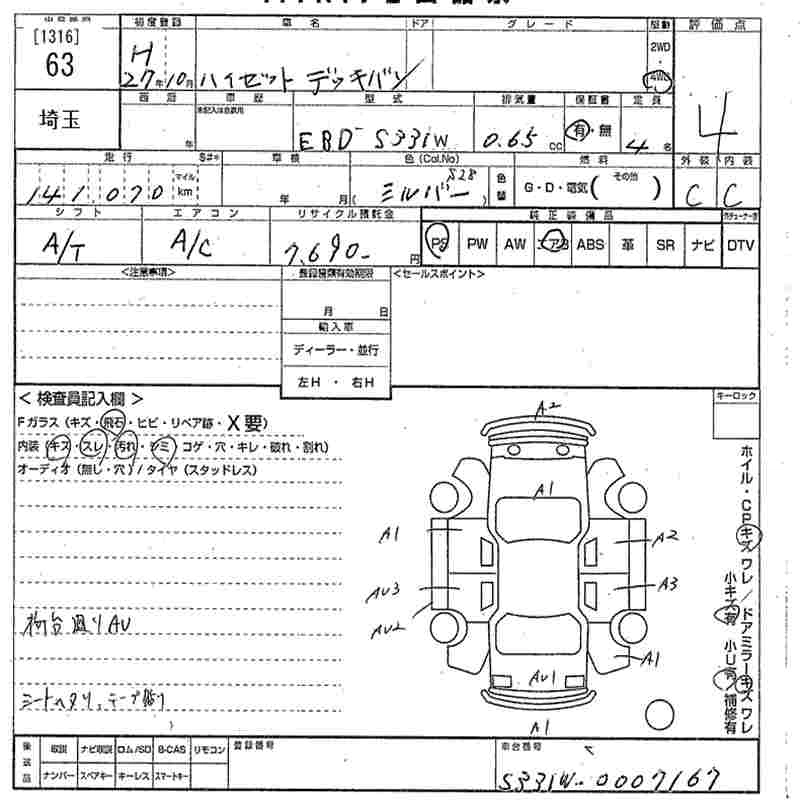 [1316]
63
埼玉
初度登録
H
27年10月
車名
ハイゼット デッキバン
ドア
グレード
駆動
2WD
・
4WD
評価点
4
年
車歴
未記入は自家用
型式
EBD-S331W
排気量
0.65 cc
保証書
有・無
定員
4名
走行
S#*
141,070
マイル
km
車検
年 月
色(Col.No)
S28
(シルバー)
色替
燃料
G・D・電気( その他 )
外装
C
内装
C
シフト
A/T
エアコン
A/C
リサイクル預託金
7,690- 円
純正装備品
PS PW AW エアB ABS 革 SR ナビ DTV
<注意事項>
登録種類有効期限
月 日
輸入車
ディーラー・並行
左H ・ 右H
<セールスポイント>
<検査員記入欄>
Fガラス(キズ・飛石・ヒビ・リペア跡・X要)
内装(キズ・スレ・汚れ・シミ・コゲ・穴・キレ・破れ・割れ)
オーディオ(無し・穴)/タイヤ(スタッドレス)
荷台廻りAU
シートヘタリ、テープ貼り
A2
A1
A1
A2
AU3
A3
AU2
A1
AU1
A1
キーロック
ホイル・CPキズ ワレ/ドアミラーキズ ワレ
小キズ有 小U有/補修有
後送品
取説 ナビ取説 ロム/SD B-CAS リモコン
ナンバー スペアキー キーレス スマートキー
登録番号
車台番号
S331W-0007167